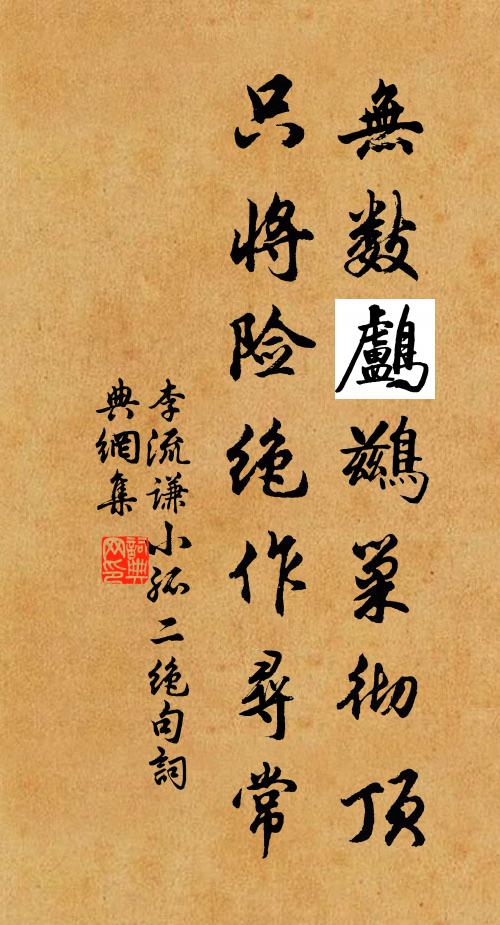 無数鸕鷀巢彻頂
只将险绝作尋常
李流谦小孤二绝句詞
典網集
詞典網印